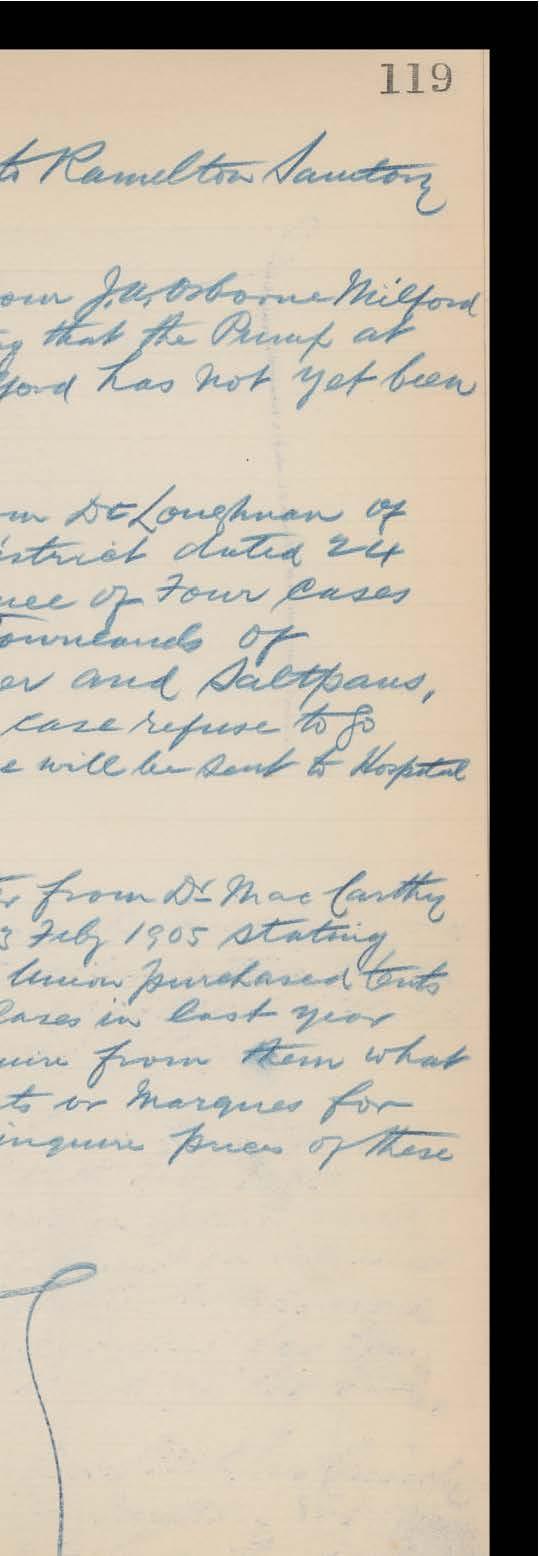 119
to Ramelton Sanitory
J.A. Osborne Milford
that the Pump at
has not yet been
Dr Loughnan of
dated 24
of Four Cases
Townlands of
and Saltpans,
case refuse to go
will be sent to Hospital
from Dr Mac Carthy
Feby 1905 stating
Union purchased tents
in last year
from them what
or Marques for
inquire prices of these